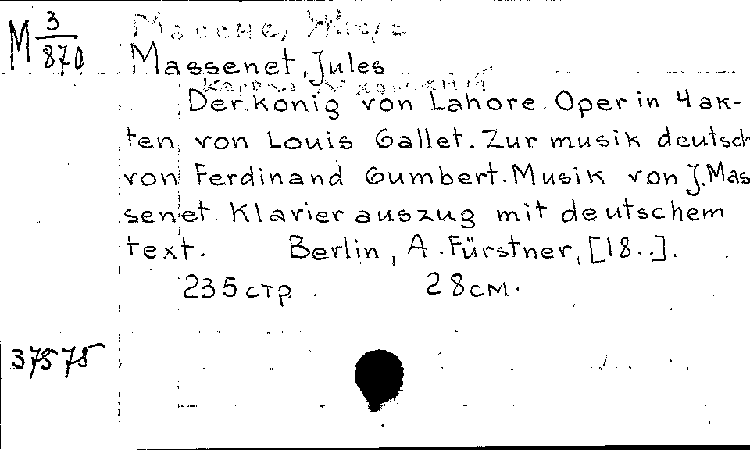 M 3/870
Massenet, Jules
Der könig von Lahore. Oper in 4 ak-
ten von Louis Gallet. Zur musik deutsch
von Ferdinand Gumbert. Musik von J. Mas
senet. Klavierauszug mit deutschem
text. Berlin, A. Fürstner, [18..].
235 стр. 28 см.
37575